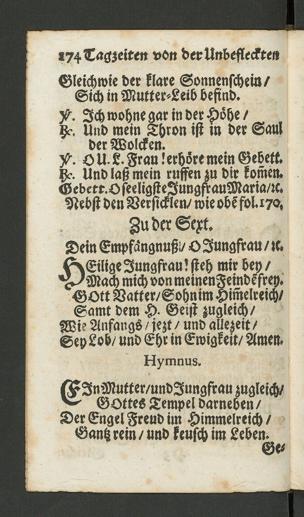 174 Tagzeiten von der Unbefleckten
Gleichwie der klare Sonnenschein /
Sich in Mutter-Leib befind.
℣. Ich wohne gar in der Höhe /
℟. Und mein Thron ist in der Saul
der Wolcken.
℣. O U. L. Frau! erhöre mein Gebett.
℟. Und laß mein ruffen zu dir kom̃en.
Gebett. O seeligste Jungfrau Maria / ꝛc.
Nebst den Versicklen / wie obẽ fol. 170.
Zu der Sext.
Dein Empfängnuß / O Jungfrau / ꝛc.
HEilige Jungfrau! steh mir bey /
Mach mich von meinen Feindẽ frey.
GOtt Vatter / Sohn im Him̃elreich /
Samt dem H. Geist zugleich /
Wie Anfangs / jezt / und allezeit /
Sey Lob / und Ehr in Ewigkeit / Amen.
Hymnus.
EIn Mutter / und Jungfrau zugleich /
GOttes Tempel darneben /
Der Engel Freud im Himmelreich /
Gantz rein / und keusch im Leben.
Ge-